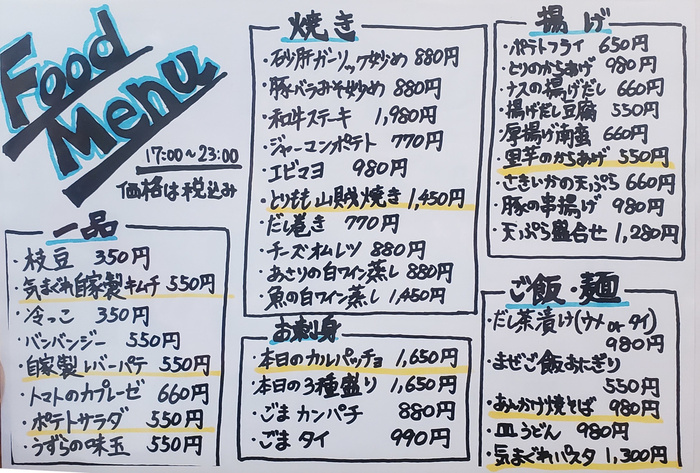 Food
Menu
17:00~23:00
価格は税込み
一品
・枝豆 350円
・気まぐれ自家製キムチ 550円
・冷っこ 350円
・バンバンジー 550円
・自家製レバーパテ 550円
・トマトのカプレーゼ 660円
・ポテトサラダ 550円
・うずらの味玉 550円
焼き
・砂肝ガーリック炒め 880円
・豚バラみそ炒め 880円
・和牛ステーキ 1,980円
・ジャーマンポテト 770円
・エビマヨ 980円
・とりもも山賊焼き 1,450円
・だし巻き 770円
・チーズオムレツ 880円
・あさりの白ワイン蒸し 880円
・魚の白ワイン蒸し 1,450円
お刺身
・本日のカルパッチョ 1,650円
・本日の3種盛り 1,650円
・ごまカンパチ 880円
・ごまタイ 990円
揚げ
・ポテトフライ 650円
・とりのからあげ 980円
・ナスの揚げだし 660円
・揚げだし豆腐 550円
・厚揚げ南蛮 660円
・里芋のからあげ 550円
・さきいかの天ぷら 660円
・豚の串揚げ 980円
・天ぷら盛合せ 1,280円
ご飯・麺
・だし茶漬け(ウメorタイ)
980円
・まぜご飯おにぎり
550円
・あんかけ焼そば 980円
・皿うどん 980円
・気まぐれパスタ 1,300円